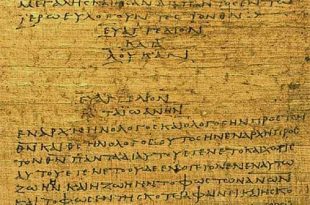 ΜΕΓΑΛΗϹΚΑΙΗϹΑΝΔΙΑΠΑΝΤΟϹΕΝΤΩ
ΙΕΡΩΕΥΛΟΓΟΥΝΤΕϹΤΟΝΘΝ
ΕΥΑΓΓΕΛΙΟΝ
ΚΑΤΑ
ΛΟΥΚΑΝ
ΕΥΑΓΓΕΛΙΟΝ
ΚΑΤΑΙΩΑΝΗΝ
ΕΝΑΡΧΗΗΝΟΛΟΓΟϹΚΑΙΟΛΟΓΟϹΗΝΠΡΟϹΤΟΝ
ΘΝΚΑΙΘϹΗΝΟΛΟΓΟϹΟΥΤΟϹΗΝΕΝΑΡΧΗΠΡΟϹ
ΤΟΝΘΝΠΑΝΤΑΔΙΑΥΤΟΥΕΓΕΝΕΤΟΚΑΙΧΩΡΙϹ
ΑΥΤΟΥΕΓΕΝΕΤΟΟΥΔΕΕΝΟΓΕΓΟΝΕΝΕΝΑΥΤΩ
ΖΩΗΗΝΚΑΙΗΖΩΗΗΝΤΟΦΩϹΤΩΝΑΝΩΝ
ΚΑΙΤΟΦΩϹΕΝΤΗϹΚΟΤΙΑΦΑΙΝΕΙΚΑΙΗϹΚΟ